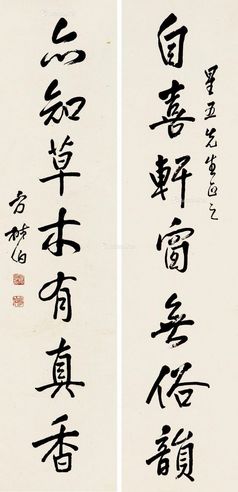 自喜軒窗無俗韻
星五先生正之
亦知草木有真香